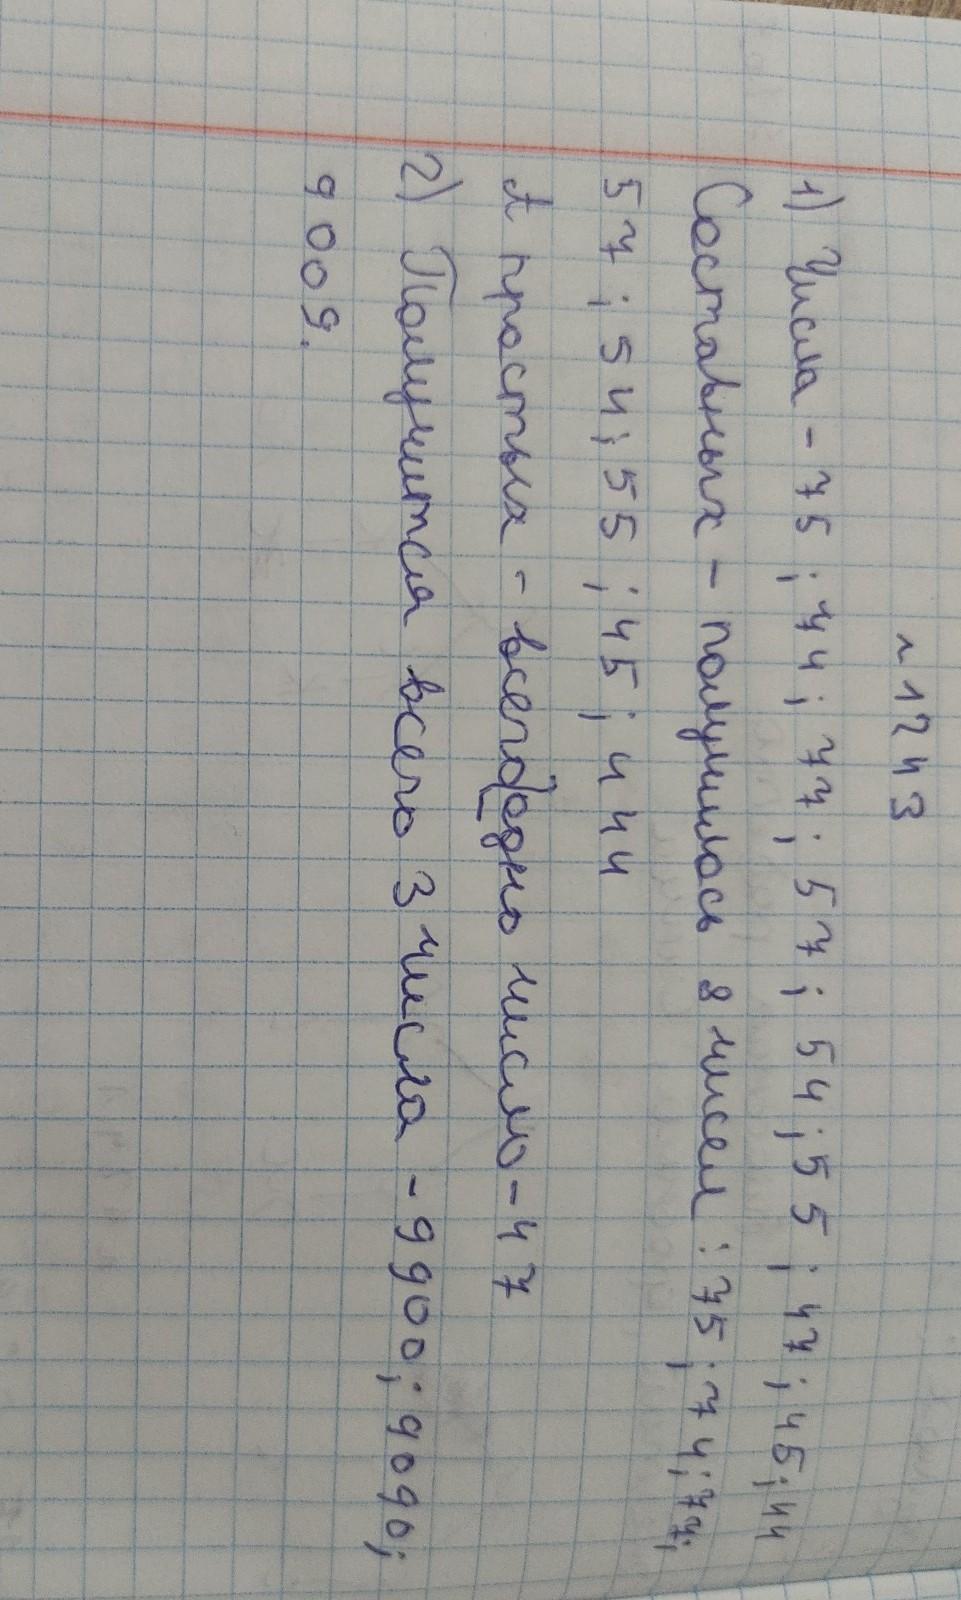 ~1243
1) Числа - 75; 74; 77; 57; 54; 55; 47; 45; 44
Составных - получилось 8 чисел: 75; 74; 77;
57; 54; 55; 45; 444
А простых - всего одно число - 47
2) Получится всего 3 числа - 9900; 9090;
9009.